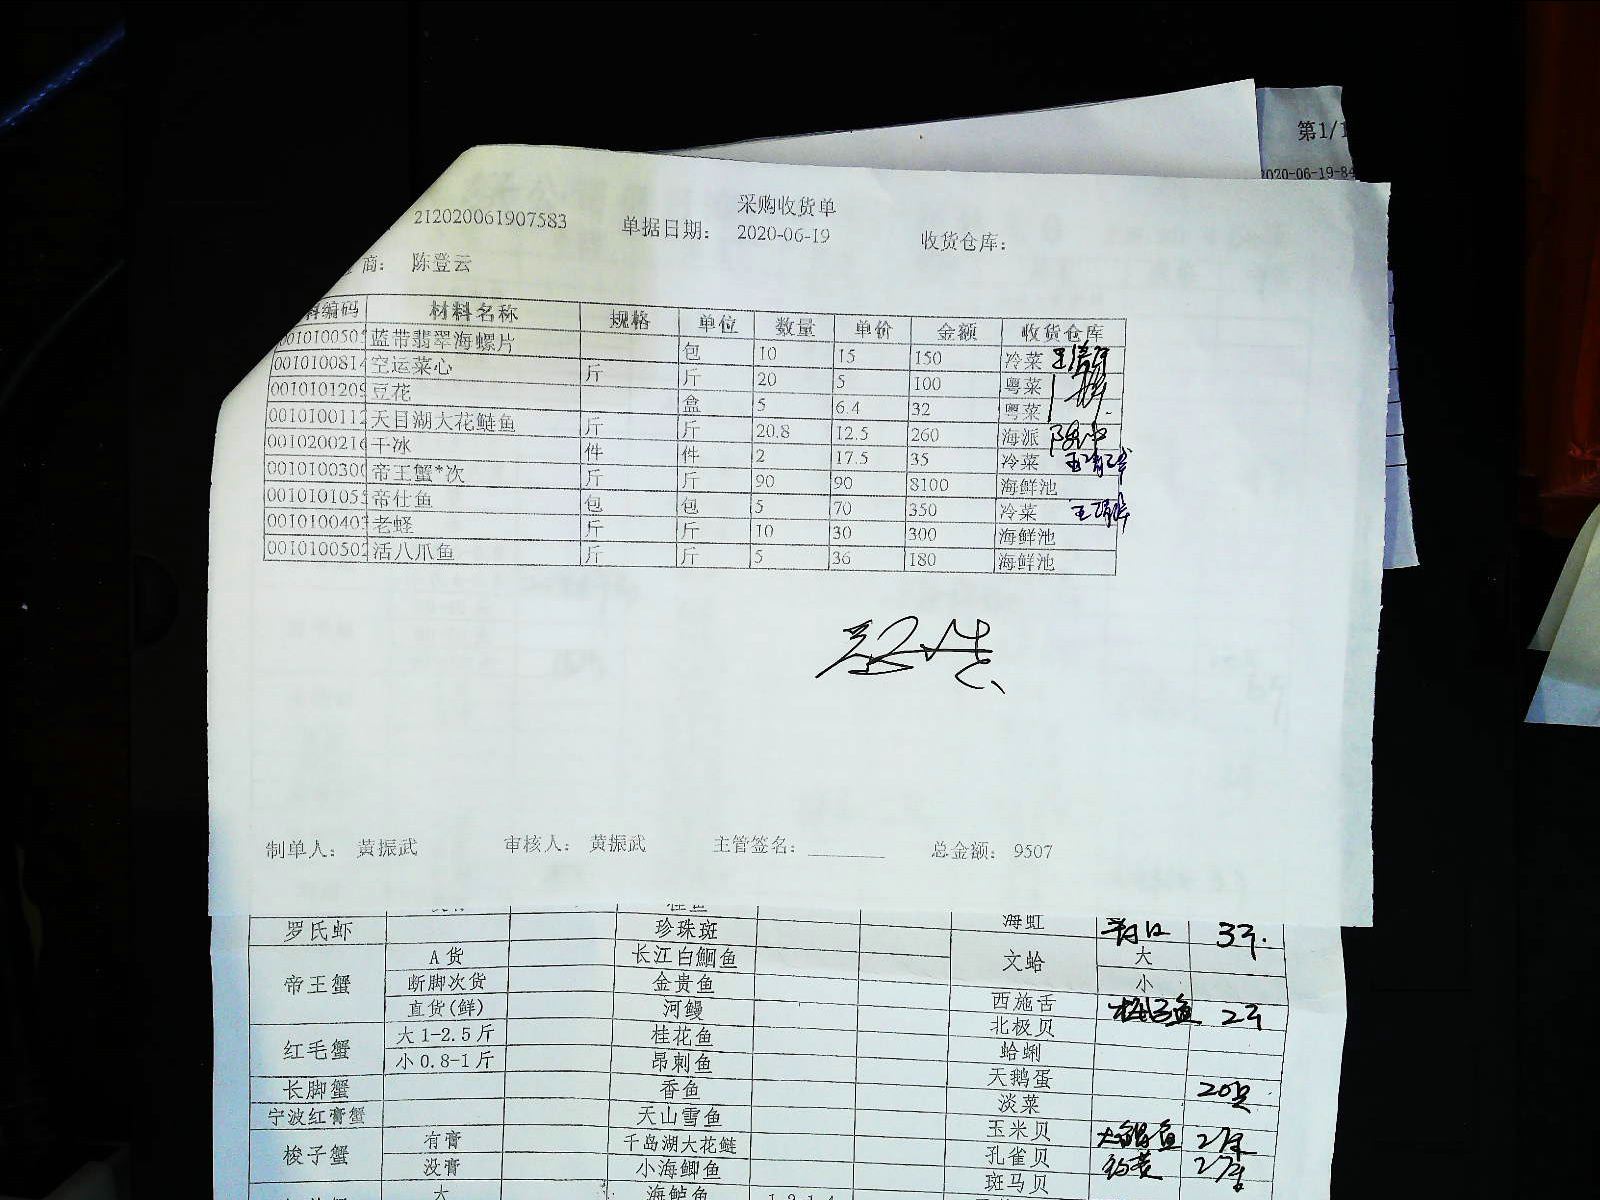 第1/1
2020-06-19-84
采购收货单
212020061907583 单据日期: 2020-06-19 收货仓库:
商: 陈登云
料编码 材料名称 规格 单位 数量 单价 金额 收货仓库
0010100505 蓝带翡翠海螺片 包 10 15 150 冷菜
0010100814 空运菜心 斤 斤 20 5 100 粤菜
0010101209 豆花 盒 5 6.4 32 粤菜
0010100112 天目湖大花鲢鱼 斤 斤 20.8 12.5 260 海派
0010200216 干冰 件 件 2 17.5 35 冷菜
0010100300 帝王蟹*次 斤 斤 90 90 8100 海鲜池
0010101055 帝仕鱼 包 包 5 70 350 冷菜
0010100403 老蛏 斤 斤 10 30 300 海鲜池
0010100502 活八爪鱼 斤 斤 5 36 180 海鲜池
制单人: 黄振武 审核人: 黄振武 主管签名: 总金额: 9507
罗氏虾 珍珠斑 海虹
帝王蟹 A货 长江白鮰鱼 文蛤 大
断脚次货 金贵鱼 小
直货(鲜) 河鳗 西施舌
红毛蟹 大1-2.5斤 桂花鱼 北极贝
小0.8-1斤 昂刺鱼 蛤蜊
长脚蟹 香鱼 天鹅蛋
宁波红膏蟹 天山雪鱼 淡菜
梭子蟹 有膏 千岛湖大花鲢 玉米贝
没膏 小海鲫鱼 孔雀贝
大 海鲈鱼 1.2-1.4 斑马贝